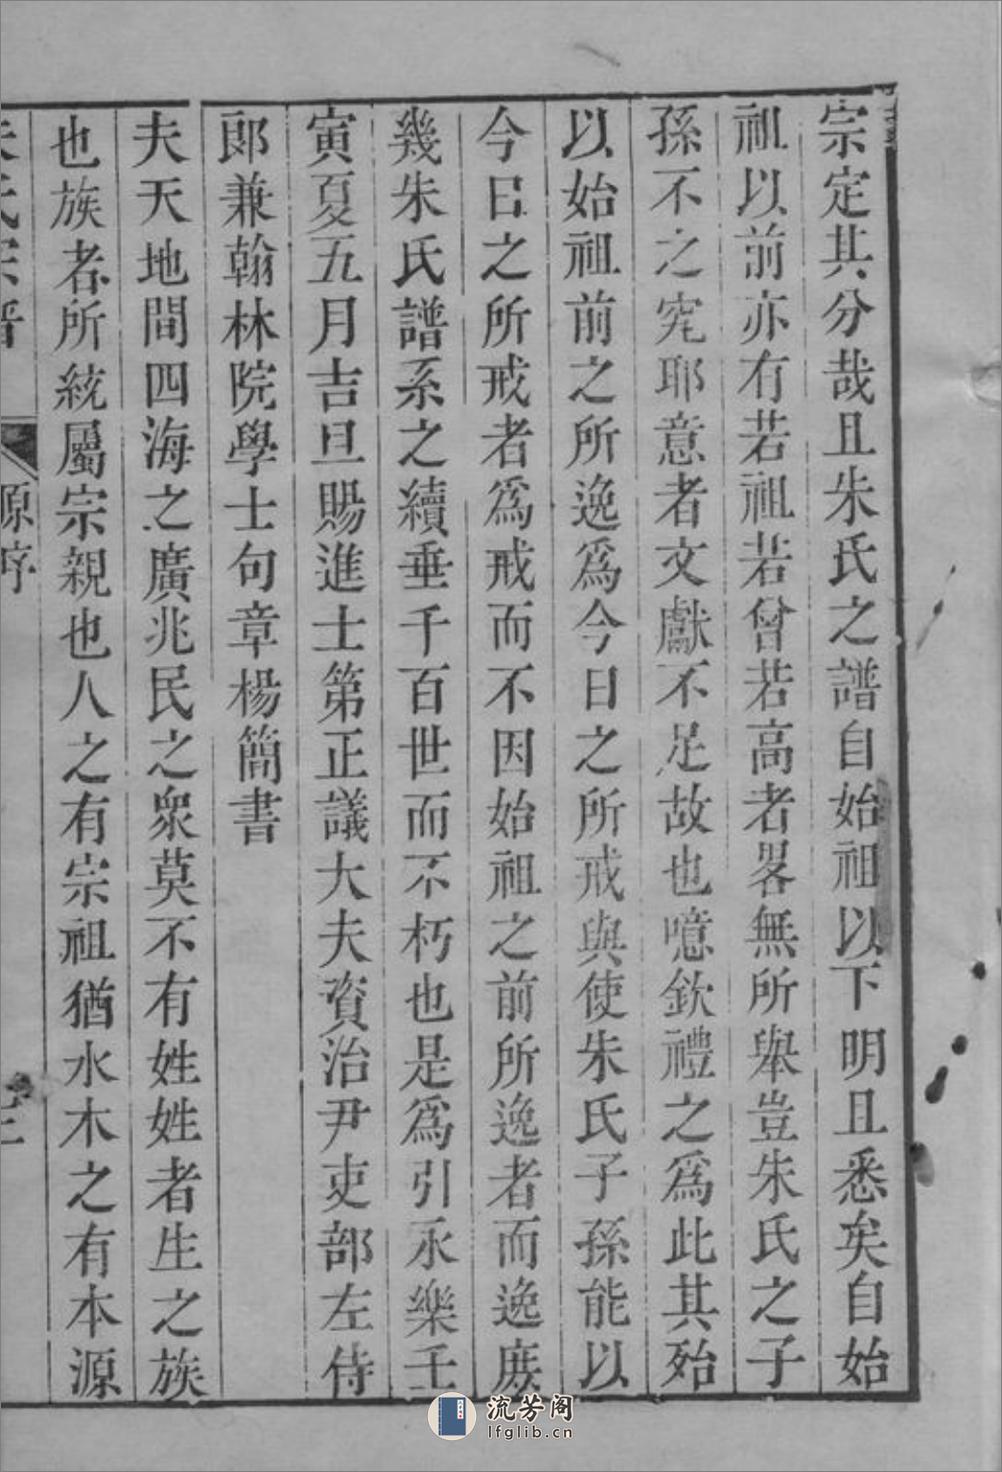 宗定其分哉且朱氏之譜自始祖以下明且悉矣自始
祖以前亦有若祖若曾若高者畧無所舉豈朱氏之子
孫不之究耶意者文獻不足故也噫欽禮之爲此其殆
以始祖前之所逸爲今日之所戒與使朱氏子孫能以
今日之所戒者爲戒而不因始祖之前所逸者而逸庶
幾朱氏譜系之續垂千百世而不朽也是爲引永樂壬
寅夏五月吉旦賜進士第正議大夫資治尹吏部左侍
郎兼翰林院學士句章楊簡書
夫天地間四海之廣兆民之衆莫不有姓姓者生之族
也族者所統屬宗親也人之有宗祖猶水木之有本源
朱氏宗譜 源序
流芳阁
lfglib.cn